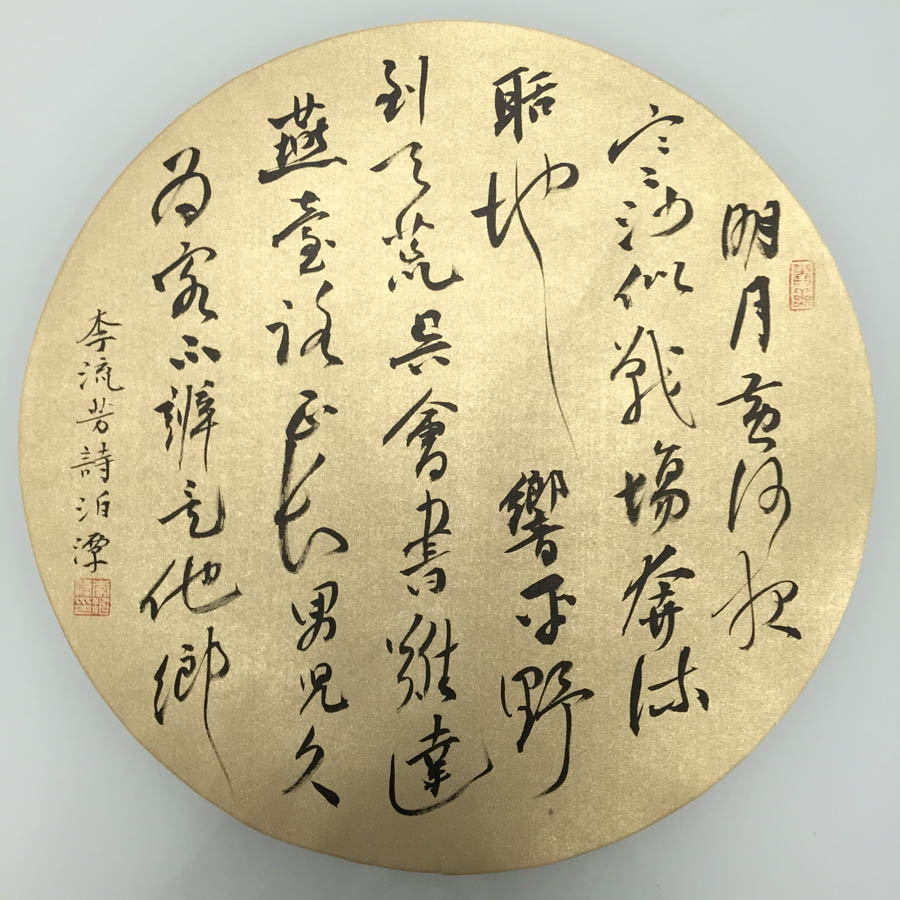 明月黃河夜
寒沙似戰場奔流
聒地響平野
到天荒吳會書難達
燕臺路正長男兒久
為客不辨是他鄉
李流芳詩泊潭